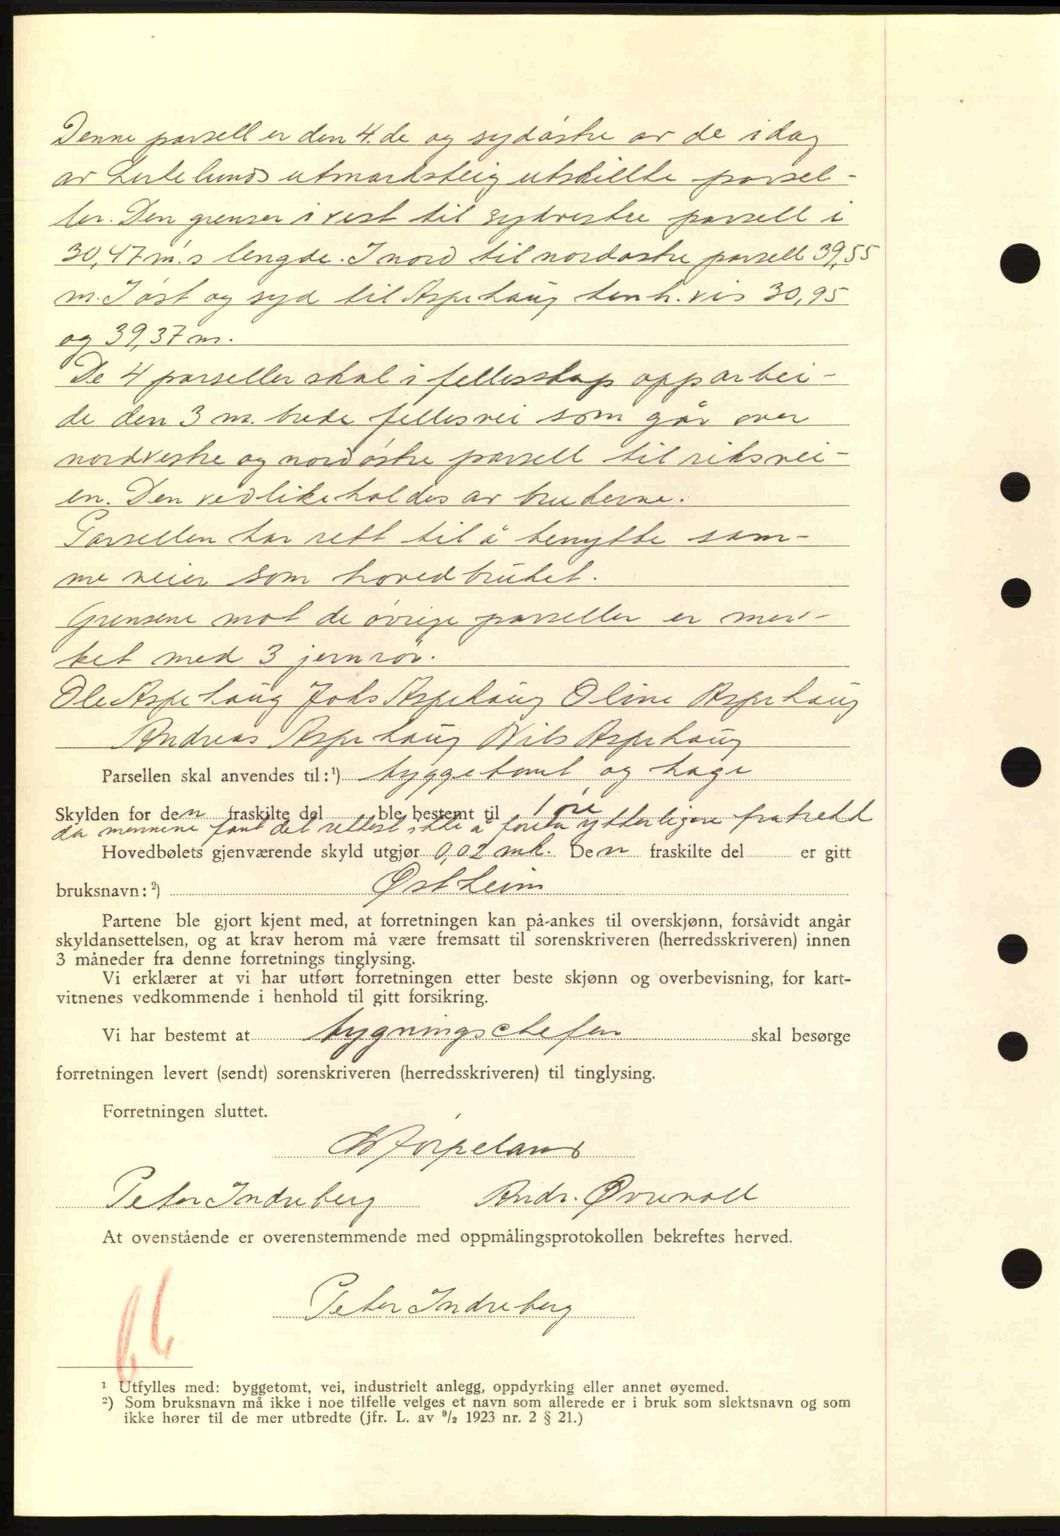 Denne parsell er den 4. de og sydøstre av de idag
av Lerkelunds utmarksteig utskillte parsel-
ler. Den grenser i vest til sydvestre parsell i
30,47 m's lengde. I nord til nordøstre parsell 39,55
m. I øst og syd til Aspehaug henh.vis 30,95
og 39,37 m.
De 4 parseller skal i fellesskap opparbei-
de den 3 m. brede fellesvei som går over
nordvestre og nordøstre parsell til riksvei-
en. Den vedlikeholdes av brukerne.
Parsellen har rett til å benytte sam-
me veier som hovedbruket.
Grensene mot de øvrige parseller er mer-
ket med 3 jernrør.
Ole Aspehaug Johs Aspehaug Oline Aspehaug
Andreas Aspehaug Nils Aspehaug
Parsellen skal anvendes til:¹) byggetomt og hage
Skylden for den fraskilte del ble bestemt til 1 øre
da mennene fant det rettest ikke å foreta ytterligere fratredd
Hovedbølets gjenværende skyld utgjør 0,02 mk. Den fraskilte del er gitt
bruksnavn:²) Østheim
Partene ble gjort kjent med, at forretningen kan på-ankes til overskjønn, forsåvidt angår
skyldansettelsen, og at krav herom må være fremsatt til sorenskriveren (herredsskriveren) innen
3 måneder fra denne forretnings tinglysing.
Vi erklærer at vi har utført forretningen etter beste skjønn og overbevisning, for kart-
vitnenes vedkommende i henhold til gitt forsikring.
Vi har bestemt at bygningschefen skal besørge
forretningen levert (sendt) sorenskriveren (herredsskriveren) til tinglysing.
Forretningen sluttet.
Jørpeland
Peter Indreberg Andr. Øvervoll
At ovenstående er overenstemmende med oppmålingsprotokollen bekreftes herved.
Peter Indreberg
¹ Utfylles med: byggetomt, vei, industrielt anlegg, oppdyrking eller annet øyemed.
²) Som bruksnavn må ikke i noe tilfelle velges et navn som allerede er i bruk som slektsnavn og som
ikke hører til de mer utbredte (jfr. L. av ⁹/₂ 1923 nr. 2 § 21.)